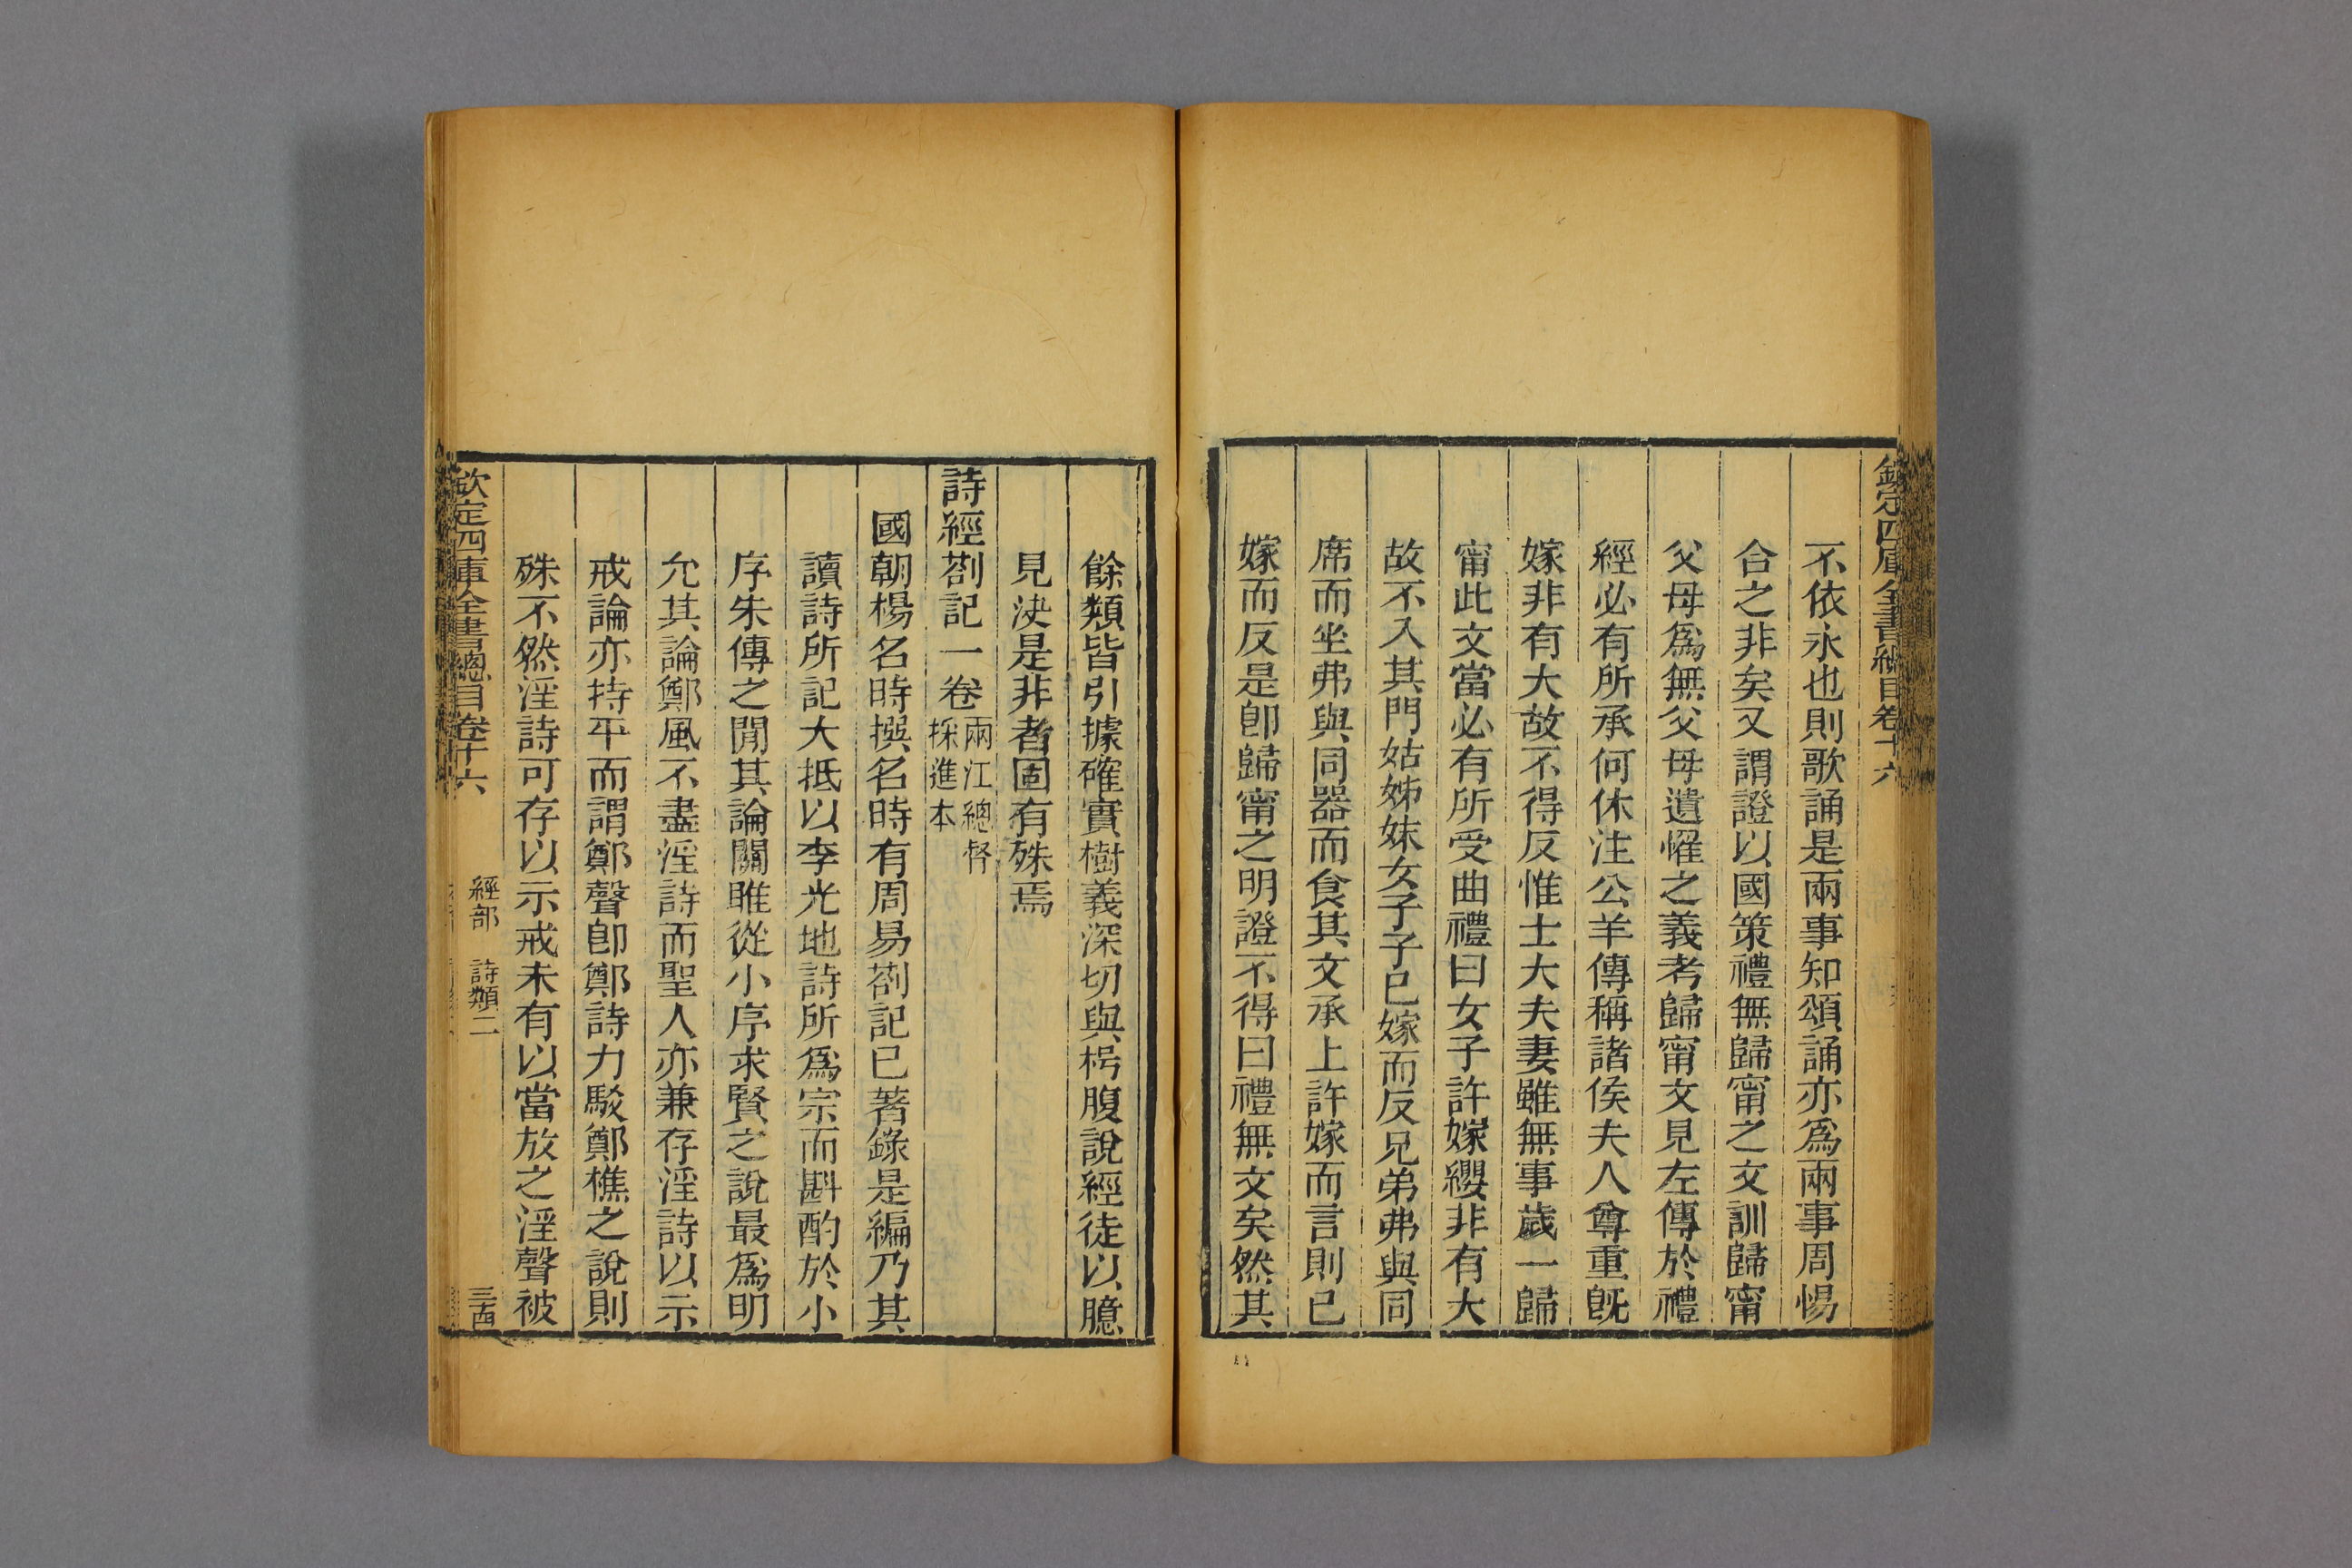 欽定四庫全書總目卷十六
不依永也則歌誦是兩事知頌誦亦爲兩事周惕
合之非矣又謂證以國策禮無歸甯之文訓歸甯
父母爲無父母遺懼之義考歸甯文見左傳於禮
經必有所承何休注公羊傳稱諸侯夫人尊重旣
嫁非有大故不得反惟士大夫妻雖無事歲一歸
甯此文當必有所受曲禮曰女子許嫁纓非有大
故不入其門姑姊妹女子子已嫁而反兄弟弗與同
席而坐弗與同器而食其文承上許嫁而言則已
嫁而反是卽歸甯之明證不得曰禮無文矣然其
餘類皆引據確實樹義深切與枵腹說經徒以臆
見決是非者固有殊焉
詩經劄記一卷兩江總督採進本
國朝楊名時撰名時有周易劄記已著錄是編乃其
讀詩所記大抵以李光地詩所爲宗而斟酌於小
序朱傳之閒其論關雎從小序求賢之說最爲明
允其論鄭風不盡淫詩而聖人亦兼存淫詩以示
戒論亦持平而謂鄭聲卽鄭詩力駁鄭樵之說則
殊不然淫詩可存以示戒未有以當放之淫聲被
欽定四庫全書總目卷十六 經部 詩類二 三百